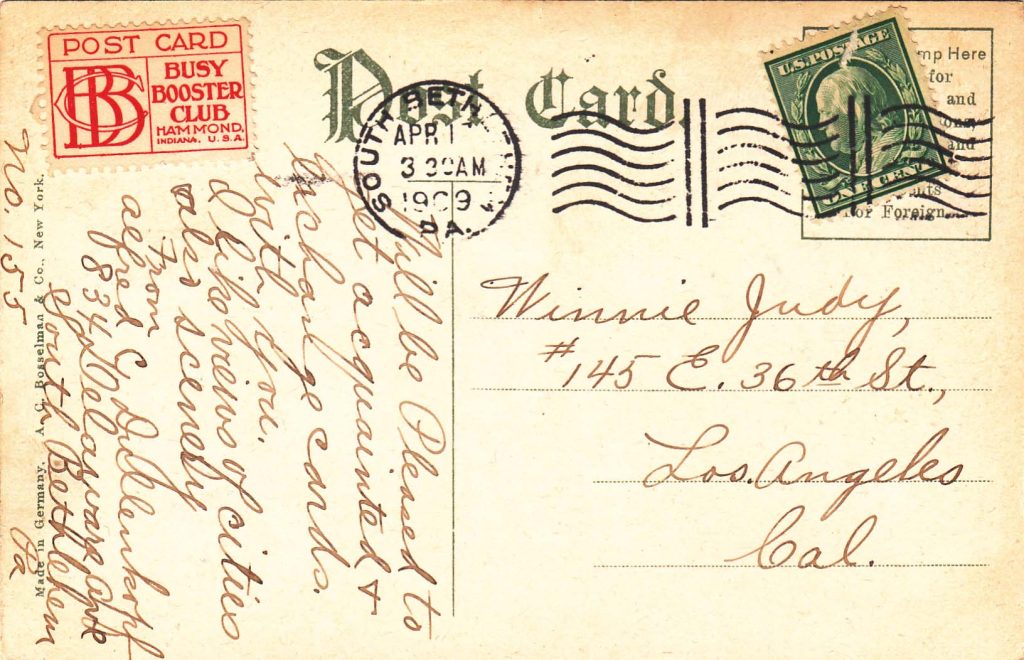 POST CARD
BCB
BUSY
BOOSTER
CLUB
HAMMOND,
INDIANA, U.S.A.
Post Card.
SOUTH BETH
PA.
APR 1
3 30 AM
1909
U.S. POSTAGE
ONE CENT
mp Here
for
and
and
For Foreign
Will be Pleased to
get acquainted &
exchange cards.
with you.
I like views of cities
also scenery
From
834 Delaware
South Bethlehem
Pa
No. 155
Made in Germany. A. C. Bosselman & Co., New York.
Winnie Judy,
#145 E. 36th St.,
Los. Angeles
Cal.